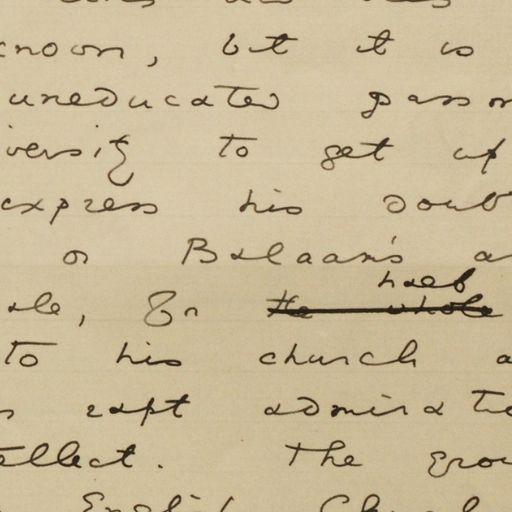 known, but it is
uneducated
to get up
express his doub
or Balaam's a
half
for the whole
to his church a
rapt admirat
ellect. The grou
English Church